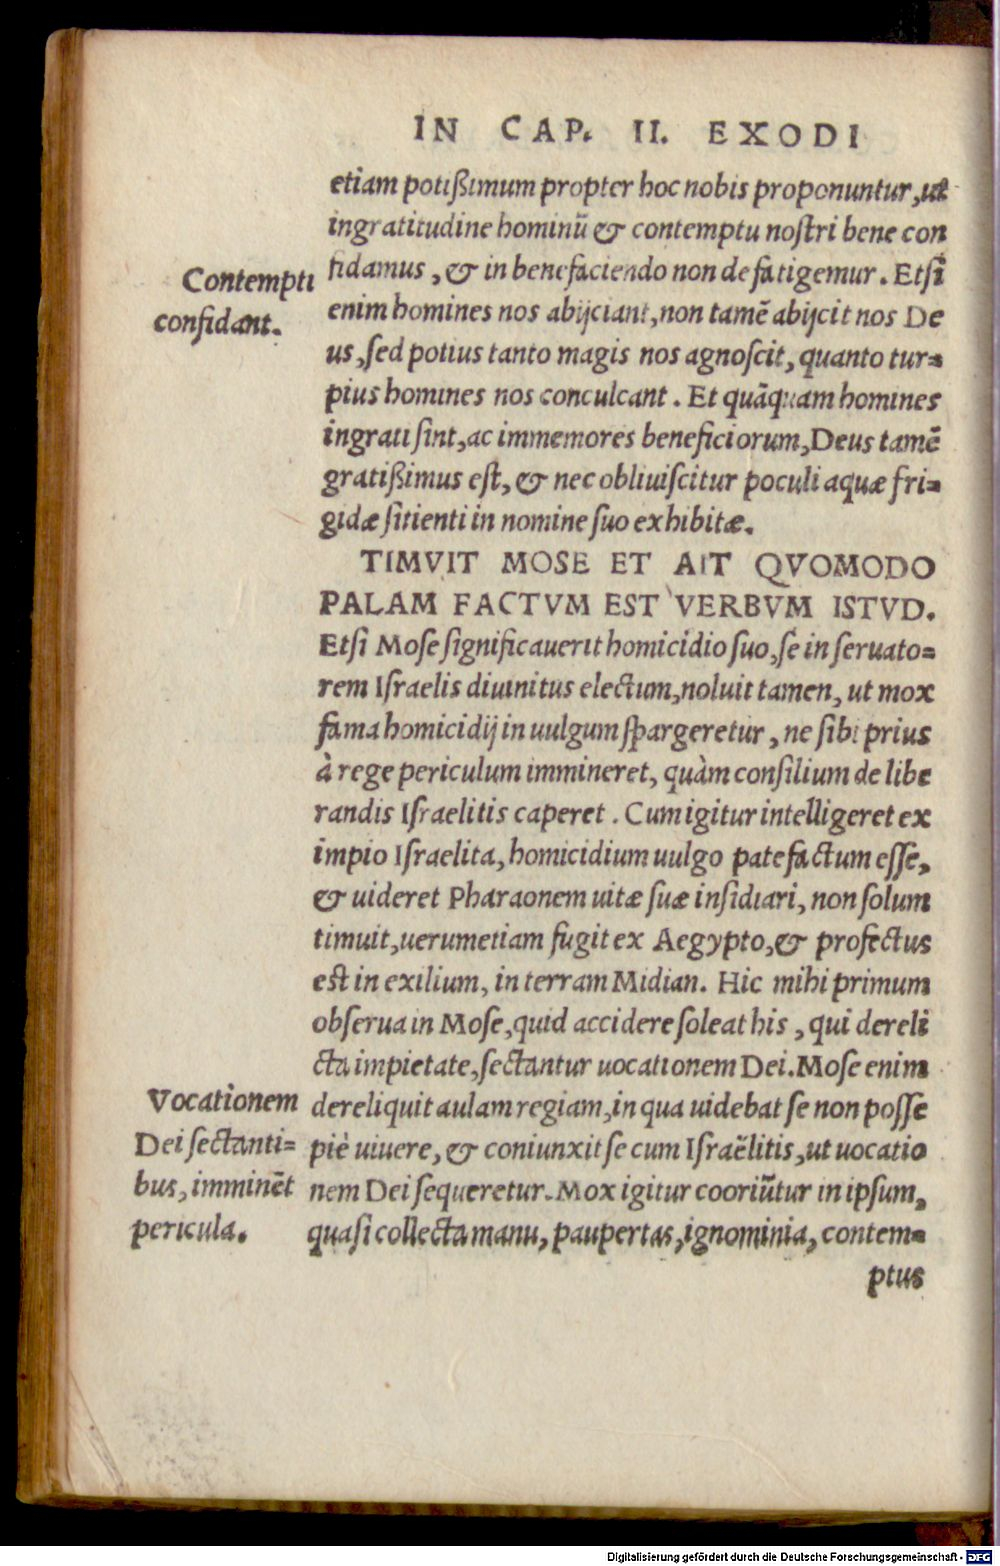 IN CAP. II. EXODI
etiam potißimum propter hoc nobis proponuntur, ut
ingratitudine hominũ & contemptu noſtri bene con
fidamus, & in benefaciendo non defatigemur. Etſi
Contempti
confidant.
enim homines nos abijciant, non tamẽ abijcit nos De
us, ſed potius tanto magis nos agnoſcit, quanto tur-
pius homines nos conculcant. Et quãquam homines
ingrati ſint, ac immemores beneficiorum, Deus tamẽ
gratißimus eſt, & nec obliuiſcitur poculi aquæ fri-
gidæ ſitienti in nomine ſuo exhibitæ.
TIMVIT MOSE ET AIT QVOMODO
PALAM FACTVM EST VERBVM ISTVD.
Etſi Moſe ſignificauerit homicidio ſuo, ſe in ſeruato-
rem Iſraelis diuinitus electum, noluit tamen, ut mox
fama homicidij in uulgum ſpargeretur, ne ſibi prius
à rege periculum immineret, quàm conſilium de libe
randis Iſraelitis caperet. Cum igitur intelligeret ex
impio Iſraelita, homicidium uulgo patefactum eſſe,
& uideret Pharaonem uitæ ſuæ inſidiari, non ſolum
timuit, uerumetiam fugit ex Aegypto, & profectus
eſt in exilium, in terram Midian. Hic mihi primum
obſerua in Moſe, quid accidere ſoleat his, qui dereli
cta impietate, ſectantur uocationem Dei. Moſe enim
Vocationem
Dei ſectanti-
bus, imminẽt
pericula.
dereliquit aulam regiam, in qua uidebat ſe non poſſe
piè uiuere, & coniunxit ſe cum Iſraëlitis, ut uocatio
nem Dei ſequeretur. Mox igitur cooriũtur in ipſum,
quaſi collecta manu, paupertas, ignominia, contem-
ptus
Digitalisierung gefördert durch die Deutsche Forschungsgemeinschaft - DFG